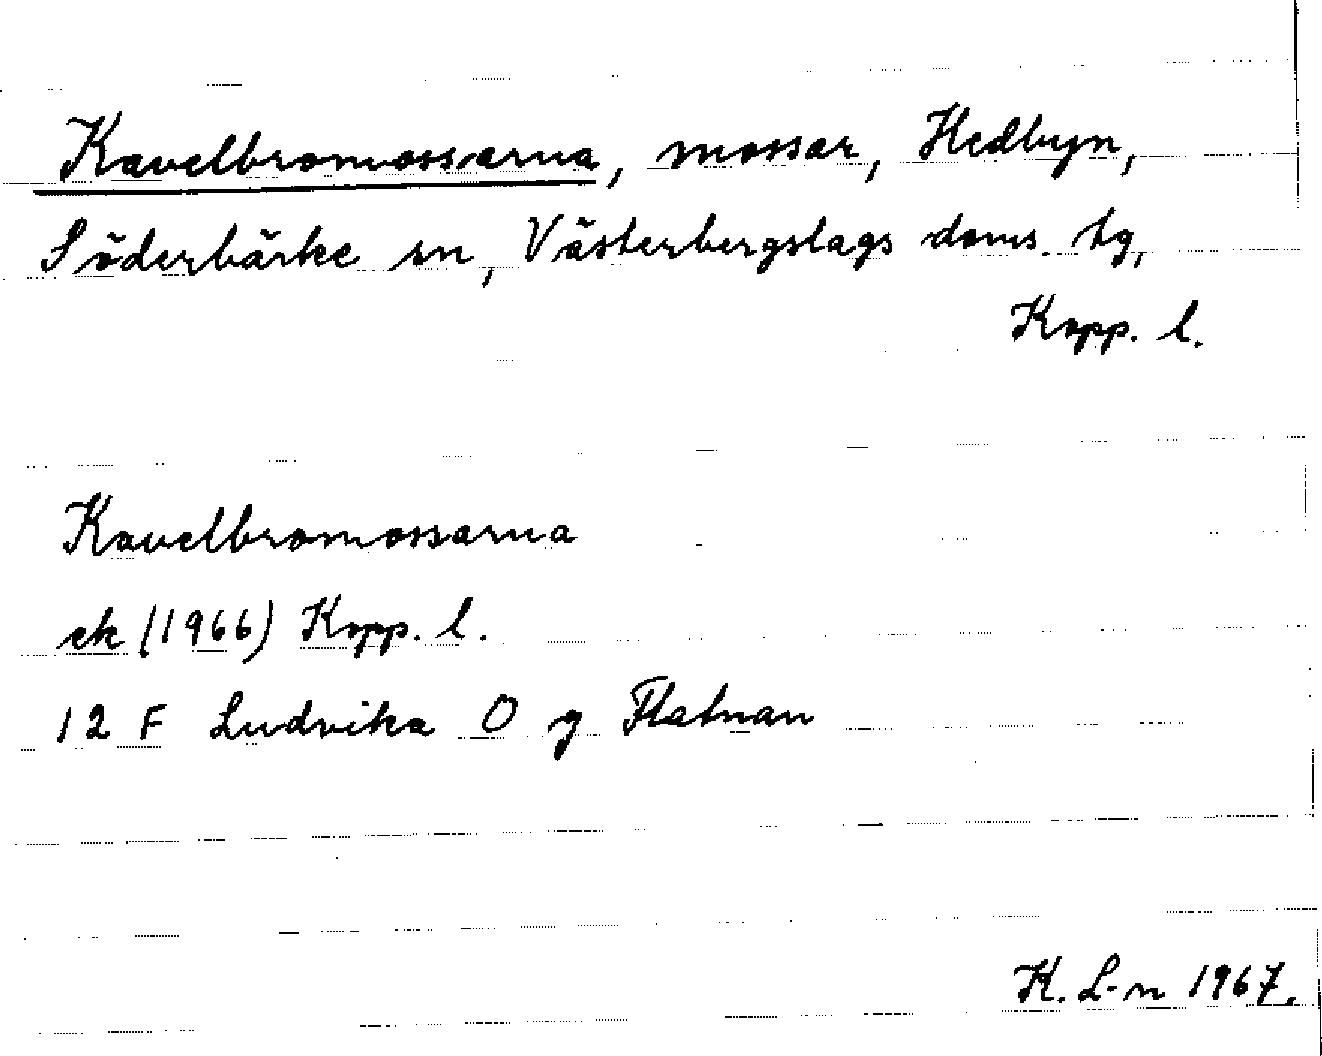 Kavelbromossarna, mossar, Hedbyn,
Söderbärke sn, Västerbergslags doms. tg,
Kopp. l.
Kavelbromossarna
ek (1966) Kopp. l.
12 F Ludvika O g Flatnan
K. L-n 1967.